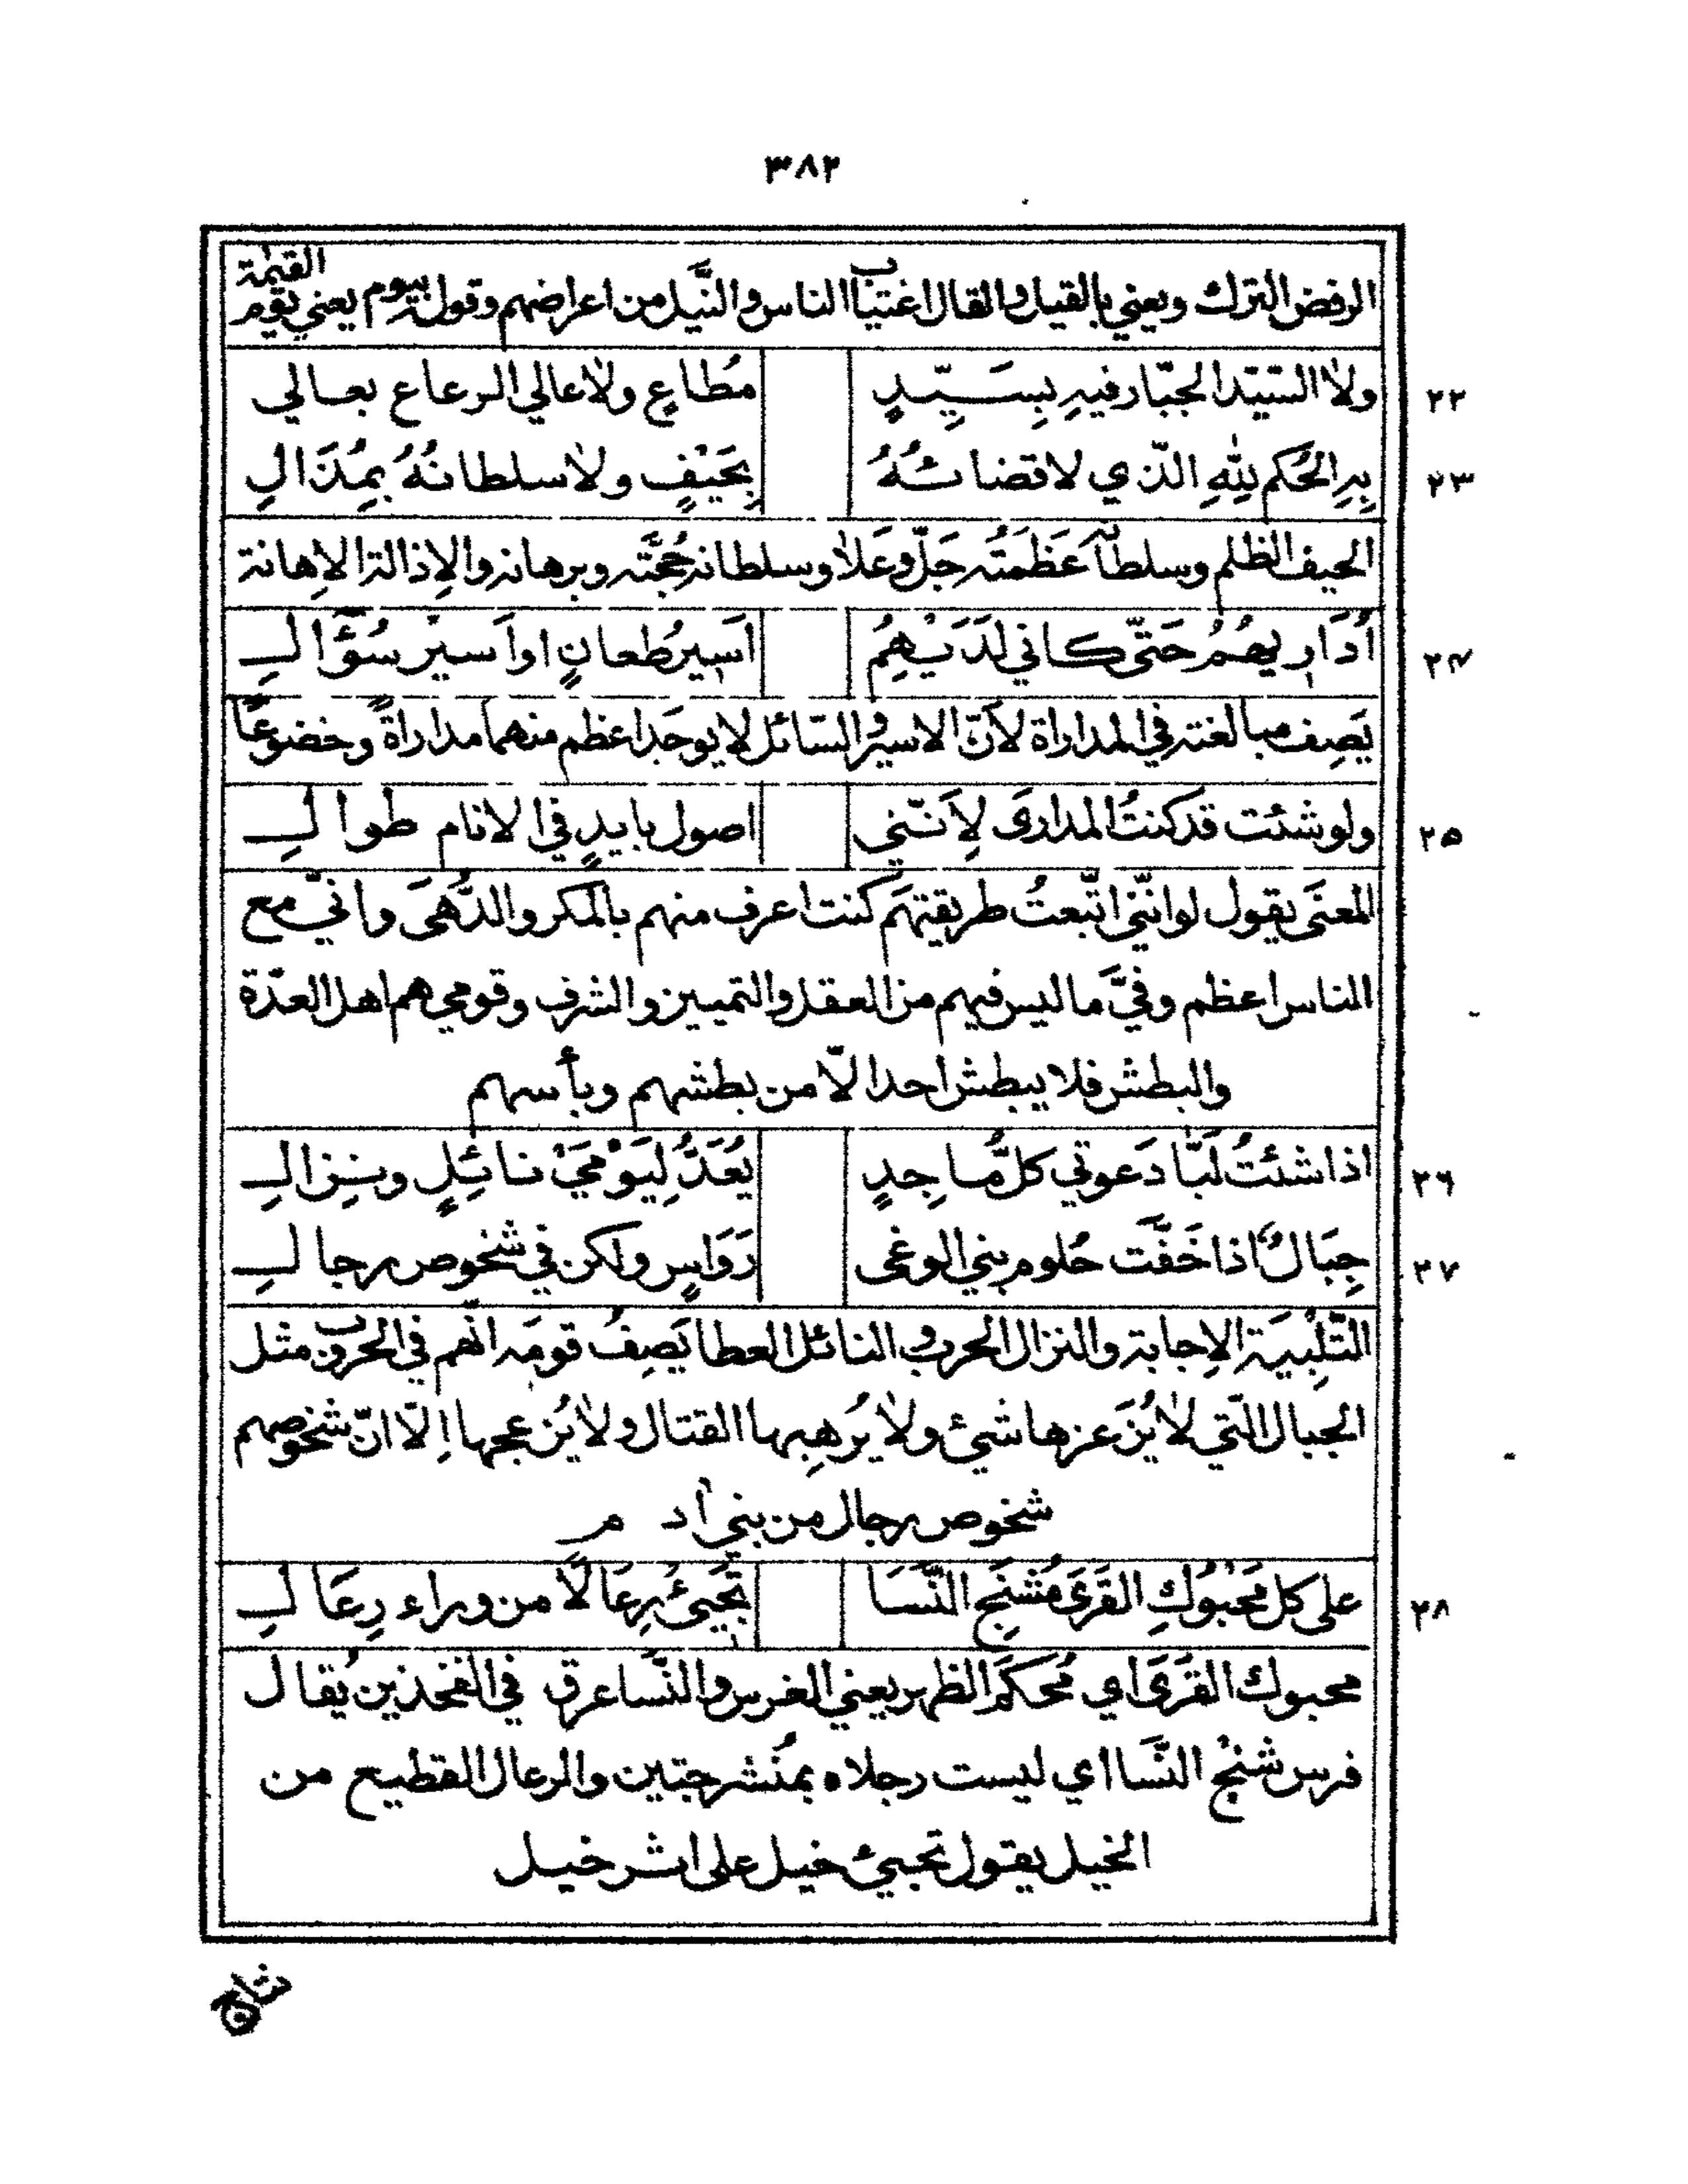 ٣٨٢
الرفض الترك ويعني بالقيل والقال اغتياب الناس والنَّيل من اعراضهم وقوله بيوم يعني يوم القيٰمة
٢٢ ولا السّيّد الجبّار فيهِ بِسَيِّدٍ مُطاعٍ ولا عالي الرعاع بعالي
٢٣ بِهِ الحُكم لِلّٰهِ الّذي لا قضائُهُ بِحَيْفٍ ولا سلطانُهُ بِمُذَالِ
الحيف الظلم وسلطانه عَظَمَتُه جَلَّ وَعَلا وسلطانه حُجَّته وبرهانه والاِذالة الاِهانة
٢٤ اُدَاريهُمُ حَتّى كاني لَدَيْهِمُ اَسيرُ طعانٍ او اَسيرُ سُؤَالِ
يَصِف مبالغته في المداراة لاَنّ الاسير والسّائل لا يوجَد اعظم منهما مداراةً وخضوعًا
٢٥ ولو شئت قد كنتُ المدارىَ لِاَنّني اصول بايدٍ في الانام طوالِ
المعنَى يقول لو انّني اتّبعتُ طريقتهَم كنت اعرف منهم بالمكر والدَّهىَ وانّي مع
الناس اعظم وفيَّ ما ليس فيهم من العقل والتمييز والشرف وقومي هم اهل العدّة
والبطش فلا يبطش احد الاّ من بطشهم وبأسهم
٢٦ اذا شئتُ لَبّا دَعوتي كلُّ مّاجِدٍ يُعَدُّ لِيَوْمَيْ نائِلٍ ونِزالِ
٢٧ جِبَالٌ اذا خَفَّت حُلوم بني الوغى رَوَاسٍ ولكن في شخوص رجالِ
التَّلْبِيَة الاِجابة والنزال الحرب والنائل العطا يَصِفُ قومَه انّهم في الحروب مثل
الجبال الّتي لا يُزَعزعها شيئ ولا يُرهِبها القتال ولا يُزعجها اِلّا انّ شخوصهم
شخوص رجال من بني اٰدم
٢٨ على كل مَحْبُوْكِ القَرَىَ مُشَنِّجِ النَّسَا تَجيئُ رِعَالاً من وراء رِعَالِ
محبوك القَرَىَ اي مُحكَم الظهر يعني الفرس والنَّسا عرق في الفخذين يُقال
فرس شنْج النَّسا اي ليست رجلاه بمُنشرجتين والرعال القطيع من
الخيل يقول تجيئ خيل على اثر خيل
شاج